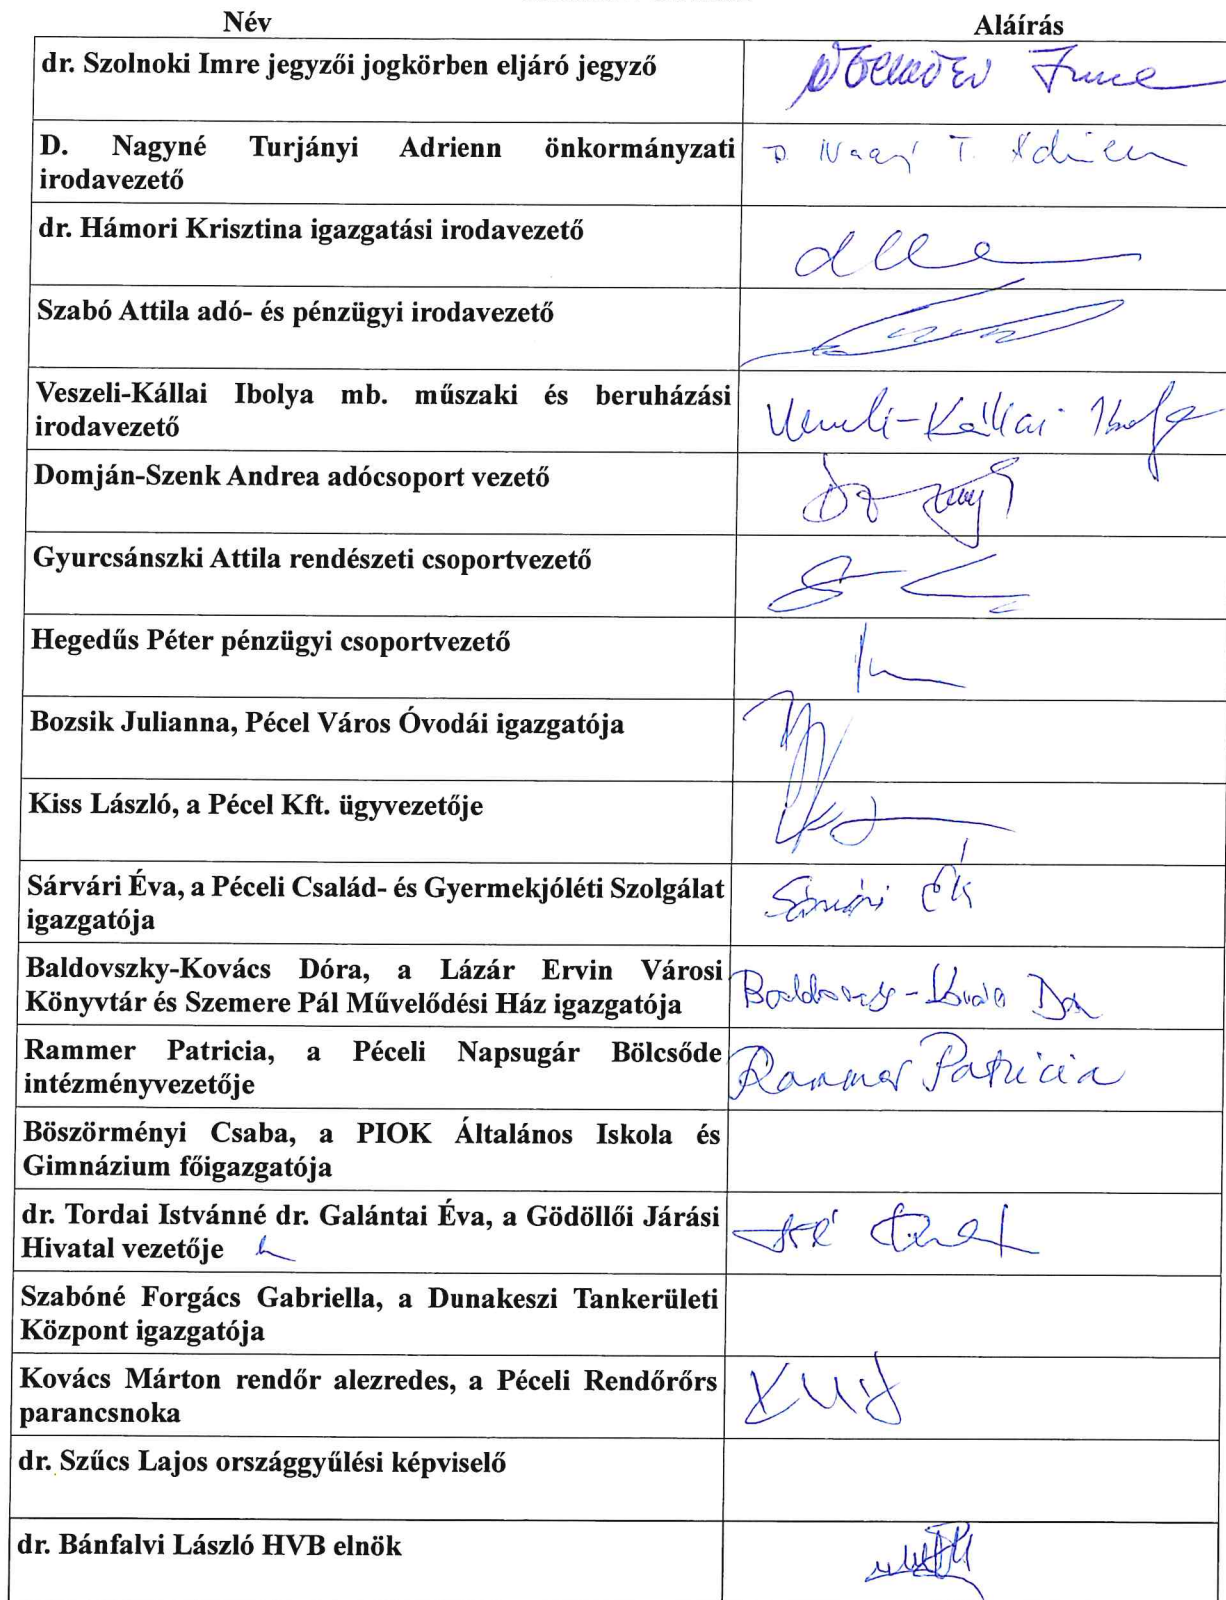 Név Aláírás
dr. Szolnoki Imre jegyzői jogkörben eljáró jegyző
D. Nagyné Turjányi Adrienn önkormányzati D. Nagy T. Adrienn
irodavezető
dr. Hámori Krisztina igazgatási irodavezető
Szabó Attila adó- és pénzügyi irodavezető
Veszeli-Kállai Ibolya mb. műszaki és beruházási
irodavezető Veszeli-Kállai Ibolya
Domján-Szenk Andrea adócsoport vezető
Gyurcsánszki Attila rendészeti csoportvezető
Hegedűs Péter pénzügyi csoportvezető
Bozsik Julianna, Pécel Város Óvodái igazgatója
Kiss László, a Pécel Kft. ügyvezetője
Sárvári Éva, a Péceli Család- és Gyermekjóléti Szolgálat
igazgatója
Baldovszky-Kovács Dóra, a Lázár Ervin Városi
Könyvtár és Szemere Pál Művelődési Ház igazgatója
Rammer Patricia, a Péceli Napsugár Bölcsőde Rammer Patricia
intézményvezetője
Böszörményi Csaba, a PIOK Általános Iskola és
Gimnázium főigazgatója
dr. Tordai Istvánné dr. Galántai Éva, a Gödöllői Járási
Hivatal vezetője
Szabóné Forgács Gabriella, a Dunakeszi Tankerületi
Központ igazgatója
Kovács Márton rendőr alezredes, a Péceli Rendőrőrs
parancsnoka
dr. Szűcs Lajos országgyűlési képviselő
dr. Bánfalvi László HVB elnök